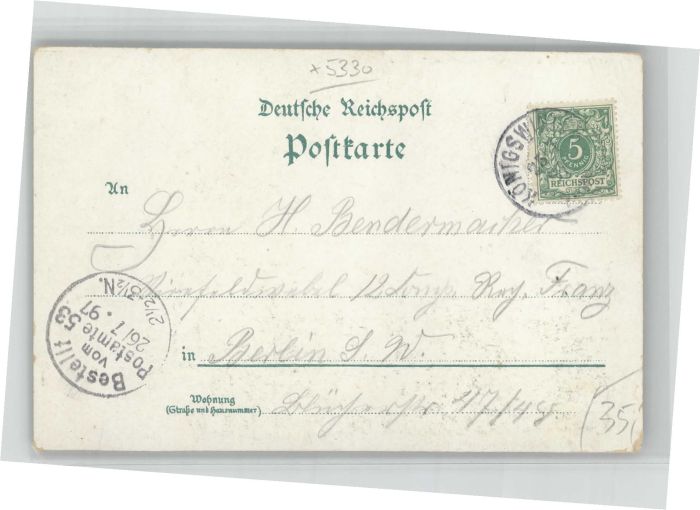 x 5330
Deutsche Reichspost
Postkarte
KÖNIGSW
5
PFENNIG
REICHSPOST
An
Herrn H Bendermacher
Vizefeldwebel 12 Comp. Reg. Franz
in Berlin S. W.
Wohnung
(Straße und Hausnummer)
Blücherstr. 47/48
Bestellt
vom
Postamte 53
26/7 . 97
2 1/2-3 1/2 N.
(35